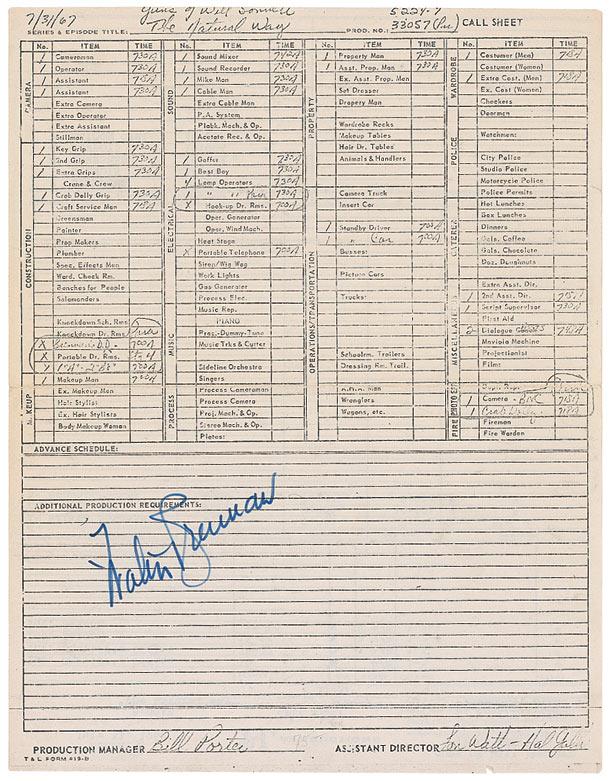 7/31/67 Guns of Will Sonnett 5224-7
SERIES & EPISODE TITLE: The Natural Way PROD. NO.: 33057 CALL SHEET
CAMERA
No. ITEM TIME
1 Cameraman 730A
1 Operator 730A
1 Assistant 718A
1 Assistant 730A
Extra Camera
Extra Operator
Extra Assistant
Stillman
CONSTRUCTION
1 Key Grip 730A
1 2nd Grip 730A
1 Extra Grips 730A
Crane & Crew
1 Crab Dolly Grip 730A
1 Craft Service Man 718A
Greensman
Painter
Prop Makers
Plumber
Spec. Effects Man
Ward. Check Rm.
Benches for People
Salamanders
Knockdown Sch. Rms.
Knockdown Dr. Rms.
X 700A
X Portable Dr. Rms.
X 700A
MAKEUP
1 Makeup Man 700A
Ex. Makeup Men
Hair Stylist
Ex. Hair Stylists
Body Makeup Woman
SOUND
No. ITEM TIME
1 Sound Mixer 742A
1 Sound Recorder 730A
1 Mike Man 730A
1 Cable Man 730A
Extra Cable Man
P.A. System
Plabk. Mach. & Op.
Acetate Rec. & Op.
ELECTRICAL
1 Gaffer 730A
1 Best Boy 730A
4 Lamp Operators 730A
1 " " 730A
X Hook-up Dr. Rms. 700A
Oper. Generator
Oper. Wind Mach.
Heat Stage
X Portable Telephone 700A
Sirep/Wig Wag
Work Lights
Gas Generator
Process Elec.
MUSIC
Music Rep.
PIANO
Prac.-Dummy-Tune
Music Trks & Cutter
Sideline Orchestra
Singers
PROCESS
Process Cameraman
Process Camera
Proj. Mach. & Op.
Stereo Mach. & Op.
Plates:
PROPERTY
No. ITEM TIME
1 Property Man 730A
1 Asst. Prop. Man 730A
Ex. Asst. Prop. Man
Set Dresser
Drapery Man
Wardrobe Racks
Makeup Tables
Hair Dr. Tables
Animals & Handlers
OPERATIONS/TRANSPORTATION
Camera Truck
Insert Car
1 Standby Driver 700A
1 " Car 700A
Busses:
Picture Cars
Trucks:
Schoolrm. Trailers
Dressing Rm. Trail.
Wranglers
Wagons, etc.
WARDROBE
No. ITEM TIME
1 Costumer (Men) 718A
Costumer (Women)
1 Extra Cost. (Men) 718A
Ex. Cost (Women)
Checkers
Doorman
POLICE
Watchmen:
City Police
Studio Police
Motorcycle Police
Police Permits
CATERER
Hot Lunches
Box Lunches
Dinners
Gals. Coffee
Gals. Chocolate
Doz. Doughnuts
MISCELLANEOUS
Extra Asst. Dir.
1 2nd Asst. Dir. 718A
1 Script Supervisor 730A
First Aid
2 Dialogue 742A
Moviola Machine
Projectionist
Film:
PHOTO EFF
1 Camera - BNC 718A
1 Crab Dolly 718A
FIRE
Fireman
Fire Warden
ADVANCE SCHEDULE:
ADDITIONAL PRODUCTION REQUIREMENTS:
Walter Brennan
PRODUCTION MANAGER Bill Porter ASSISTANT DIRECTOR
T & L FORM #19-B